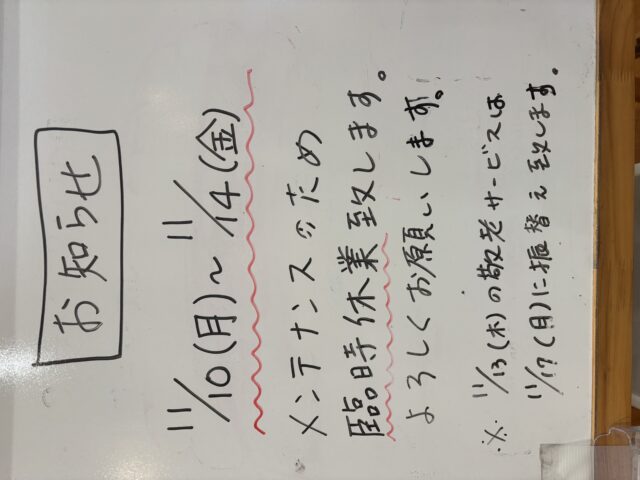 お知らせ
11/10(月)～11/14(金)
メンテナンスのため
臨時休業致します。
よろしくお願いします。
※ 11/13(木)の敬老サービスは
11/17(月)に振替え致します。